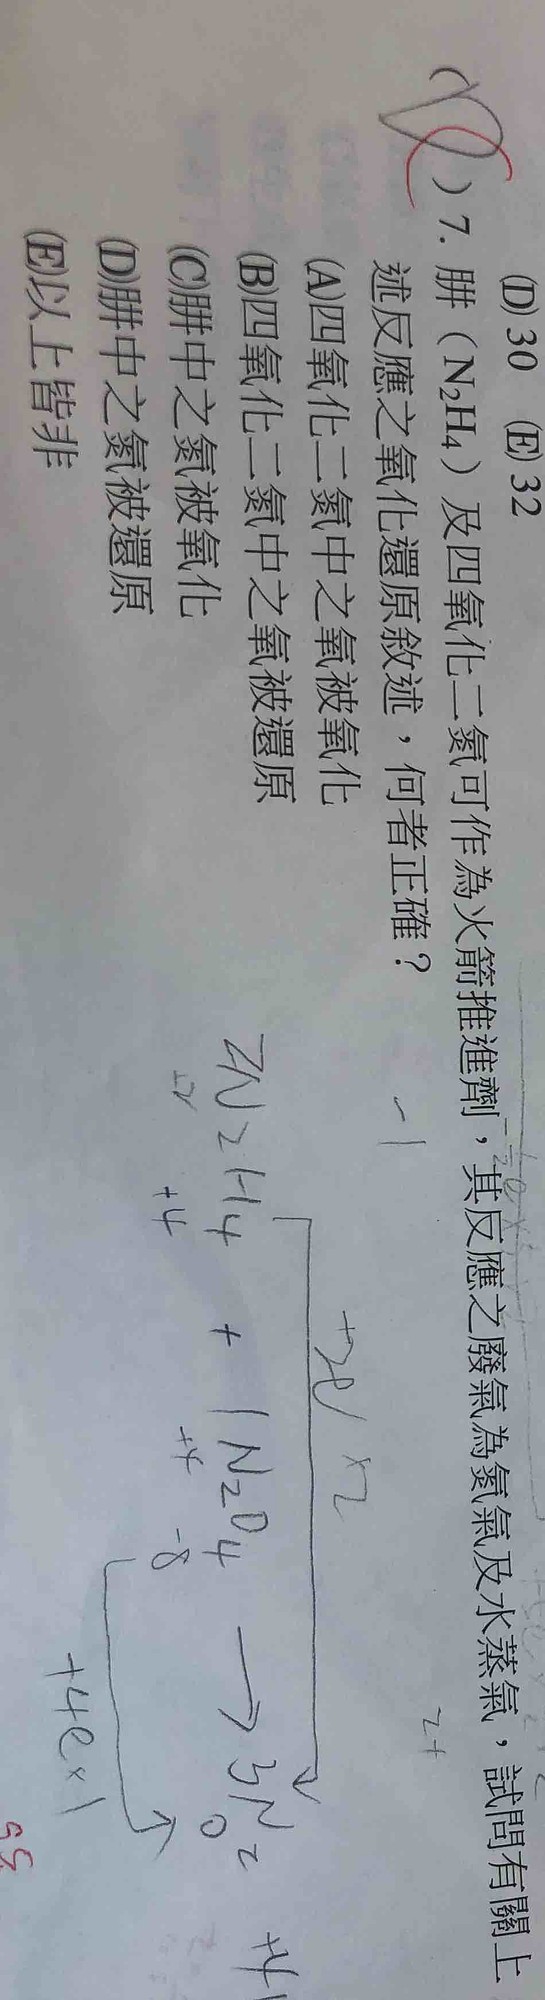 (D) 30 (E) 32
( D ) 7. 肼（N₂H₄）及四氧化二氮可作為火箭推進劑，其反應之廢氣為氮氣及水蒸氣，試問有關上
述反應之氧化還原敘述，何者正確？
(A)四氧化二氮中之氧被氧化
(B)四氧化二氮中之氧被還原
(C)肼中之氮被氧化
(D)肼中之氮被還原
(E)以上皆非
-1
2+
+2e × 2
2N₂H₄ + 1N₂O₄ → 3N₂ + 4
+4 +4 -8 0
+4e × 1